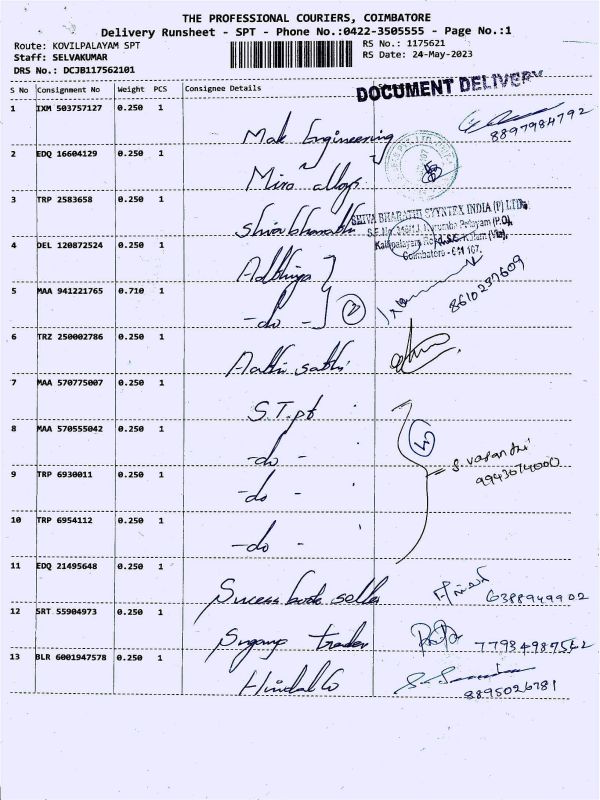 THE PROFESSIONAL COURIERS, COIMBATORE
Delivery Runsheet - SPT - Phone No.:0422-3505555 - Page No.:1
Route: KOVILPALAYAM SPT RS No.: 1175621
Staff: SELVAKUMAR RS Date: 24-May-2023
DRS No.: DCJB117562101
DOCUMENT DELIVERY
S No Consignment No Weight PCS Consignee Details
1 IXM 503757127 0.250 1 Mak Engineering 8897984792
2 EDQ 16604129 0.250 1 Miro alloys
3 TRP 2583658 0.250 1 Shivabharathi
SHIVA BHARATHI SYYNTEX INDIA (P) LTD.
Coimbatore - 641 107.
4 DEL 120872524 0.250 1 Adthiya
5 MAA 941221765 0.710 1 -do- 2 8610237609
6 TRZ 250002786 0.250 1 Aathi sakthi
7 MAA 570775007 0.250 1 S.T.pt
8 MAA 570555042 0.250 1 -do- 4
S. Vasanthi
9943074000
9 TRP 6930011 0.250 1 -do-
10 TRP 6954112 0.250 1 -do-
11 EDQ 21495648 0.250 1 Sucess book seller 6388949902
12 SRT 55904973 0.250 1 trader
13 BLR 6001947578 0.250 1 Hindalco 8895026781